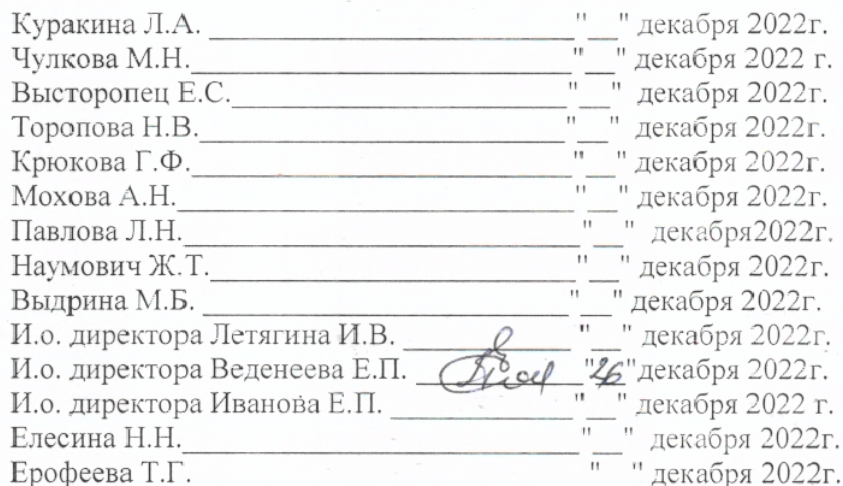 Куракина Л.А. ______________________"__" декабря 2022г.
Чулкова М.Н.______________________"__" декабря 2022 г.
Высторопец Е.С.____________________"__" декабря 2022г.
Торопова Н.В.______________________"__" декабря 2022г.
Крюкова Г.Ф.______________________"__" декабря 2022г.
Мохова А.Н.______________________"__" декабря 2022г.
Павлова Л.Н.______________________"__" декабря2022г.
Наумович Ж.Т.____________________"__" декабря 2022г.
Выдрина М.Б. ____________________"__" декабря 2022г.
И.о. директора Летягина И.В. __________ "__" декабря 2022г.
И.о. директора Веденеева Е.П. __________"26"декабря 2022г.
И.о. директора Иванова Е.П. ___________"__" декабря 2022 г.
Елесина Н.Н.______________________"__" декабря 2022г.
Ерофеева Т.Г. ______________________"__" декабря 2022г.